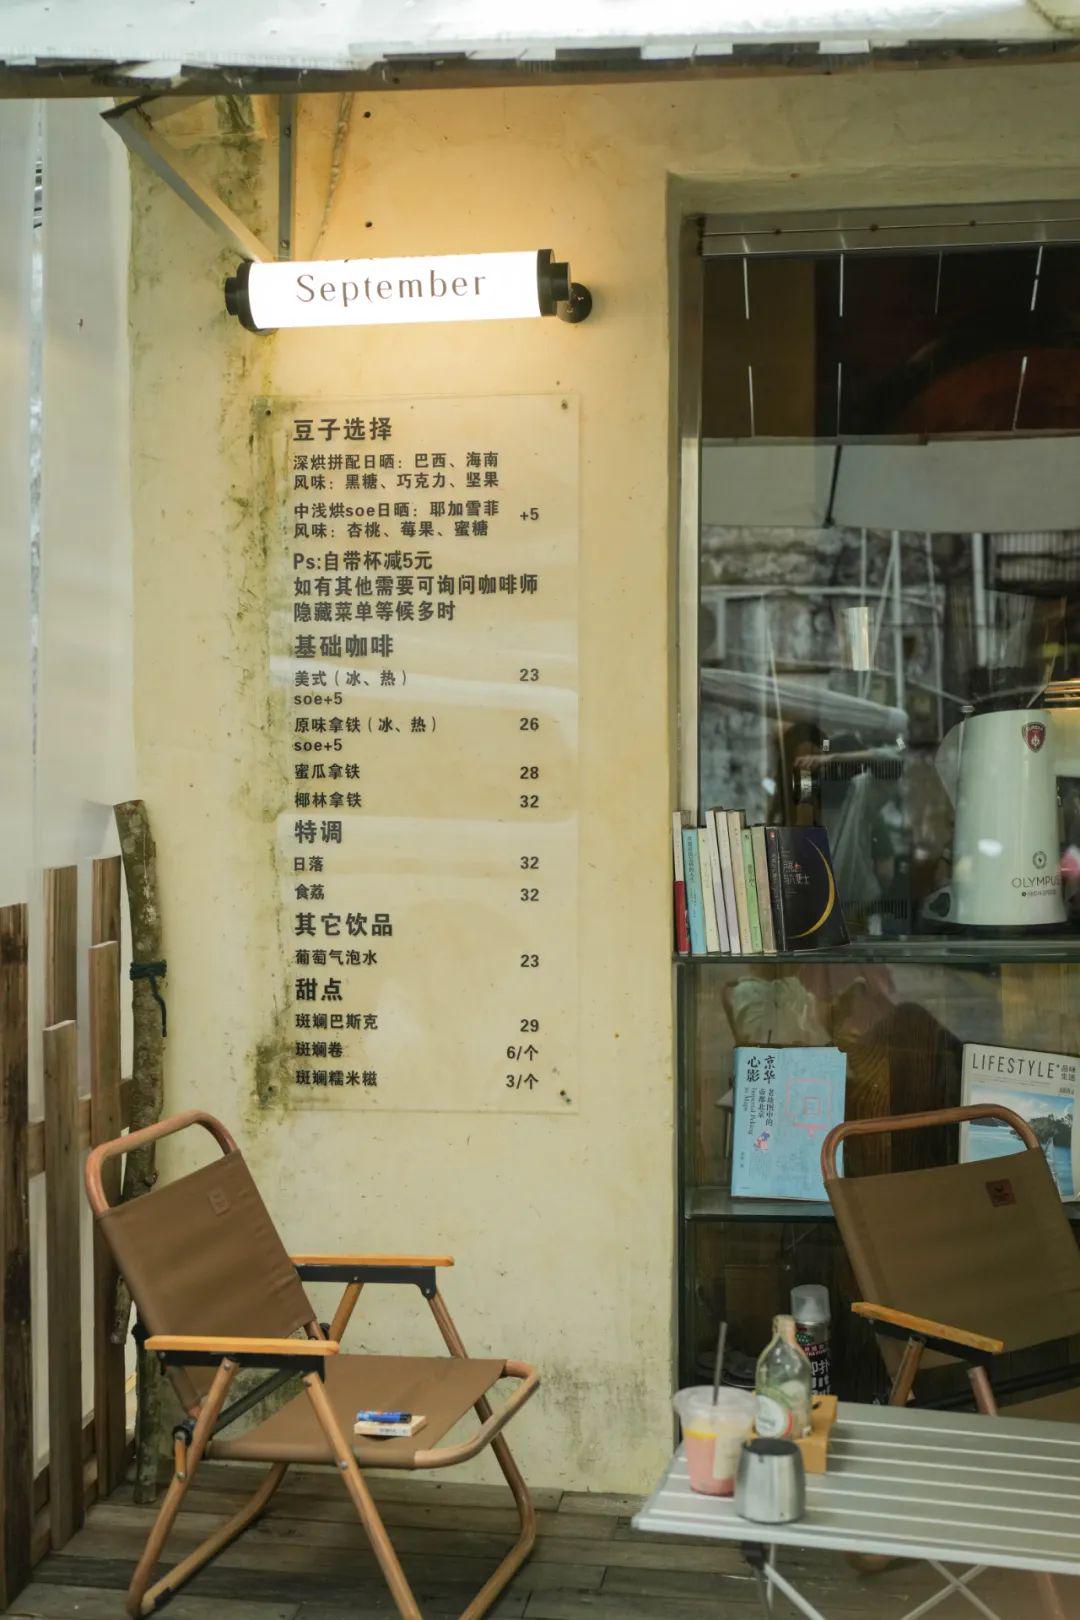 September
豆子选择
深烘拼配日晒：巴西、海南
风味：黑糖、巧克力、坚果
中浅烘soe日晒：耶加雪菲 +5
风味：杏桃、莓果、蜜糖
Ps:自带杯减5元
如有其他需要可询问咖啡师
隐藏菜单等候多时
基础咖啡
美式（冰、热） 23
soe+5
原味拿铁（冰、热） 26
soe+5
蜜瓜拿铁 28
椰林拿铁 32
特调
日落 32
食荔 32
其它饮品
葡萄气泡水 23
甜点
斑斓巴斯克 29
斑斓卷 6/个
斑斓糯米糍 3/个
OLYMPUS
京华
心影
老地图中的
帝都北京
Imperial Peking
in Maps
LIFESTYLE
品味
生活